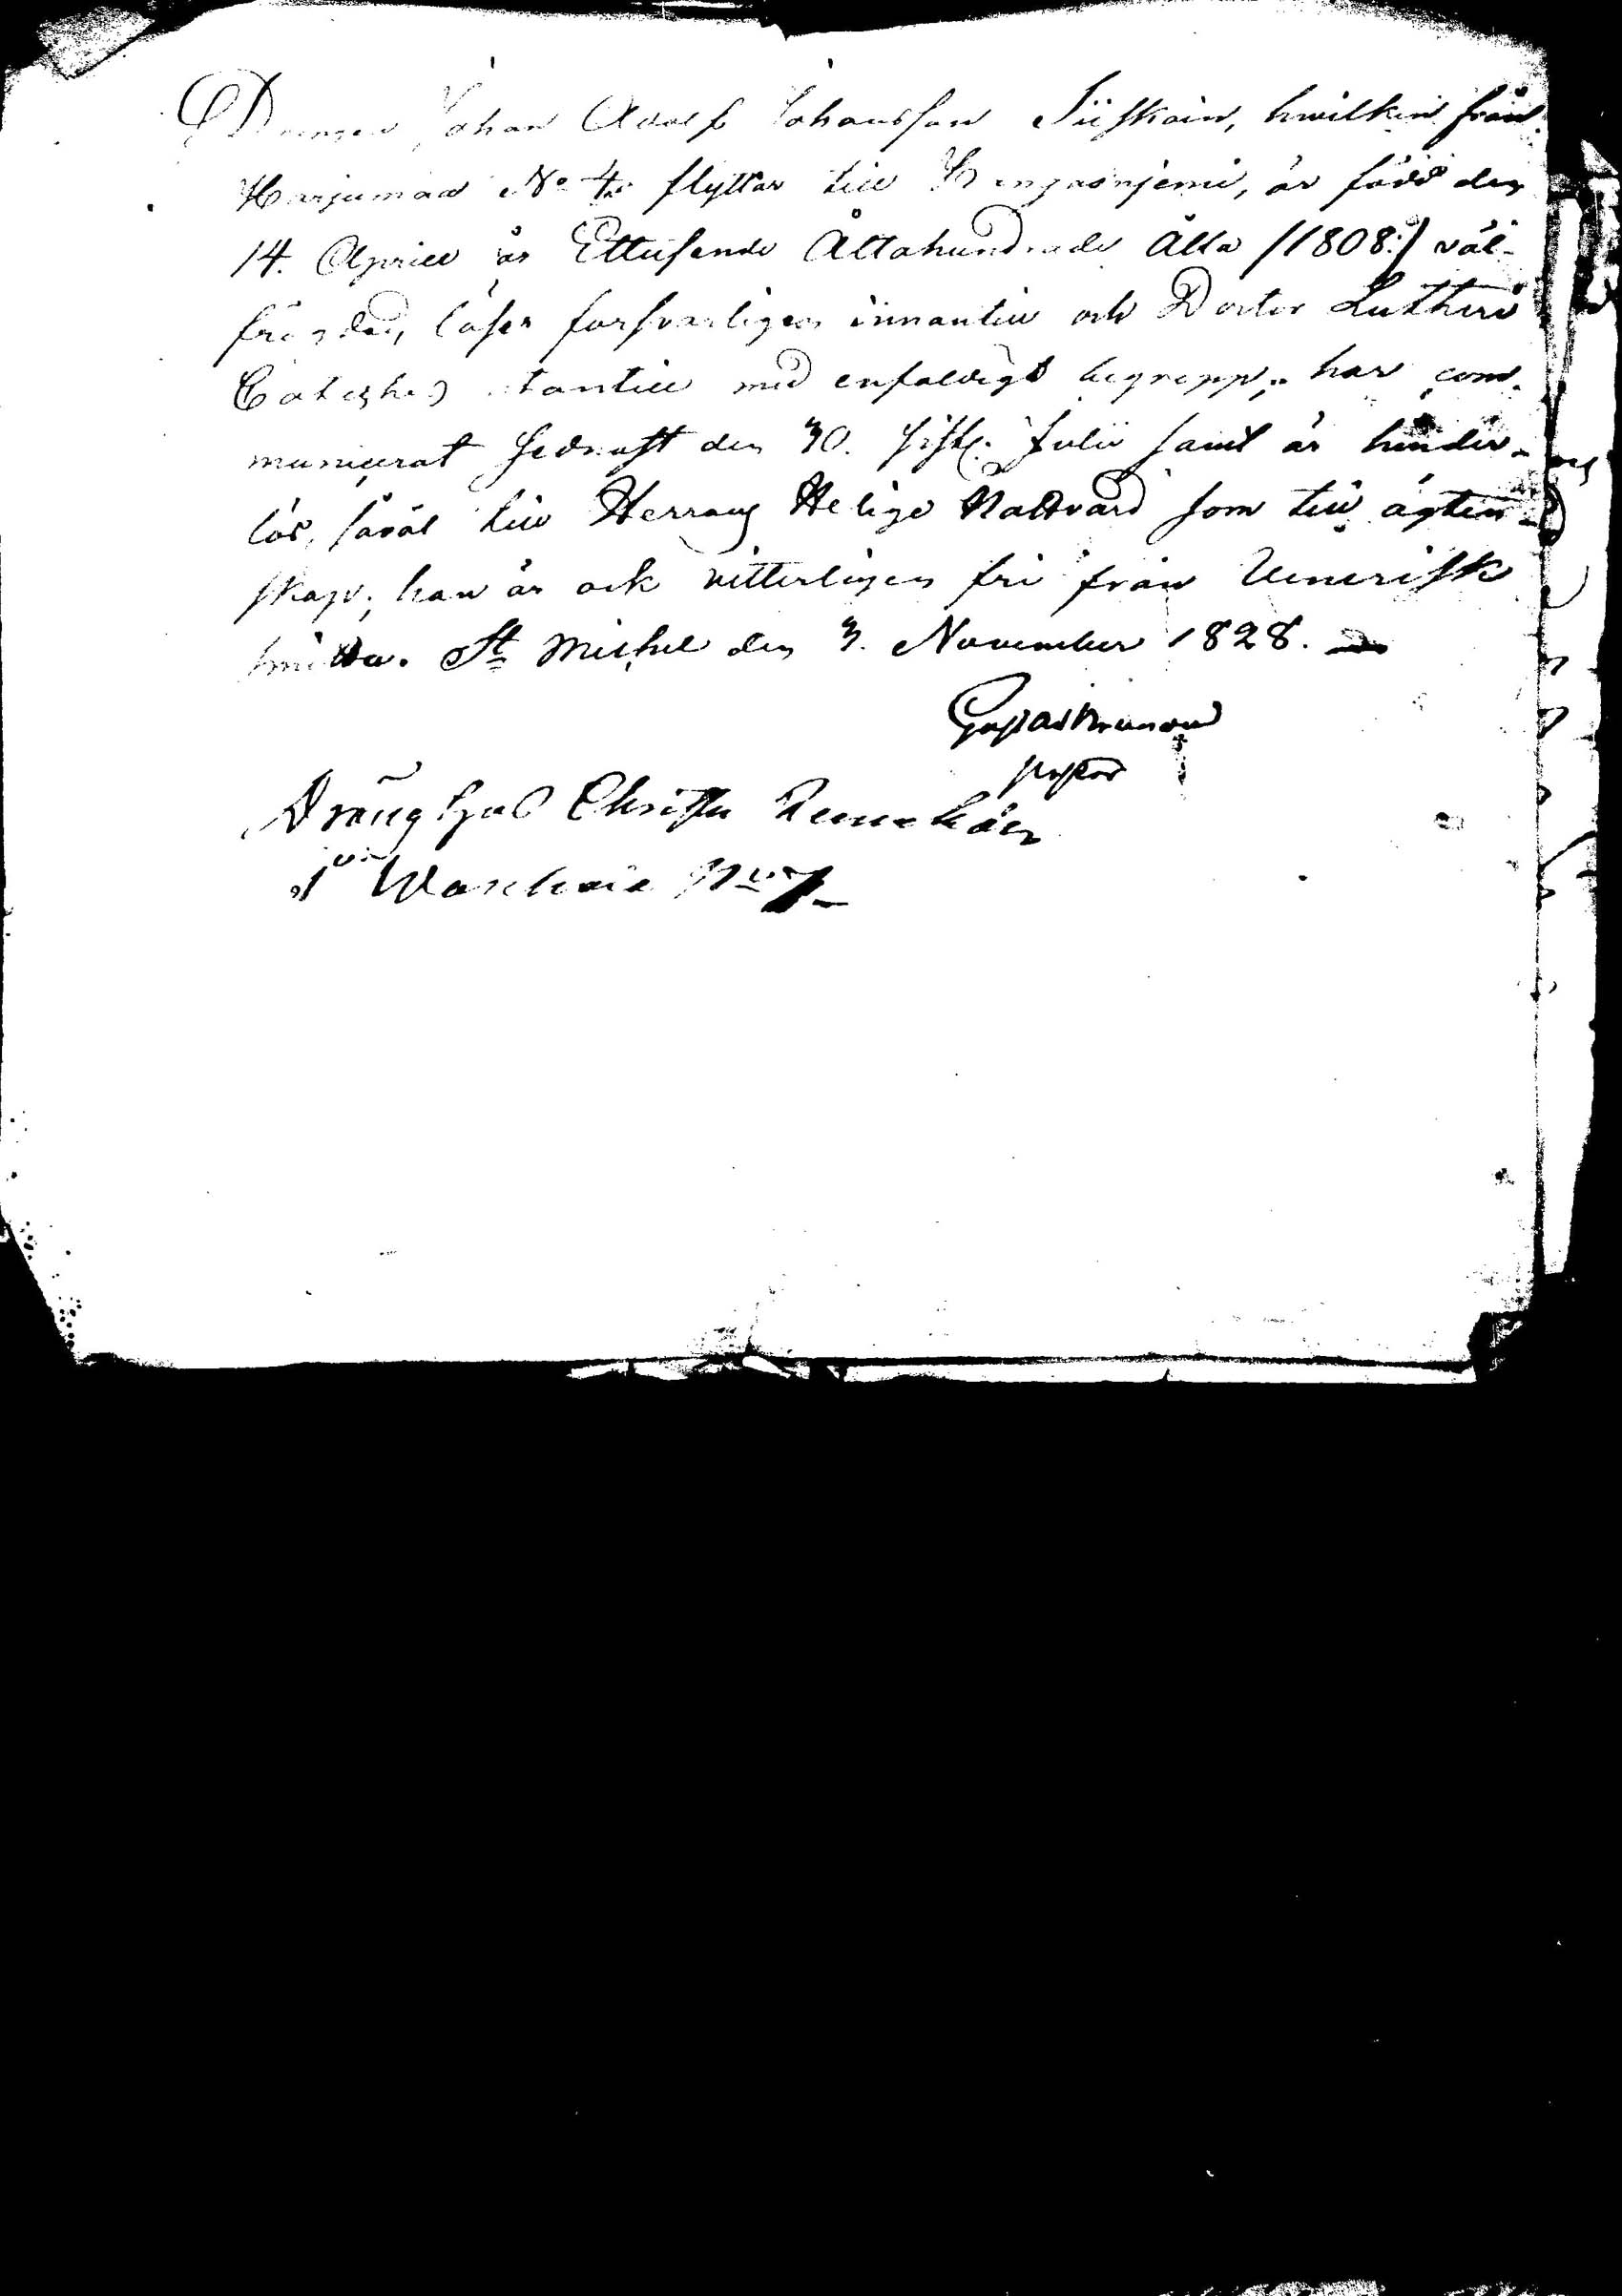 Drengen Johan Adolf Johansson Siiskoin, hwilken från
Harjumaa No 4 flyttar till Kangasnjemi, är född den
14. April år Ettusende Åttahundrade Åtta /:1808:/ väl-
frägdad, läser forsvarligen innantill och Doctor Lutheri
Cateches utantill med enfaldigt begrepp; har com-
municerat sednast den 30. sistl. Julii samt är hinder-
lös, såväl till Herrans Helige Nattvard som till ägten-
skap; han är ock vitterligen fri från Venerisk
smitta. St Michel den 3. November 1828.
Gustaf
pastor
Dräng hos Christer
No 7